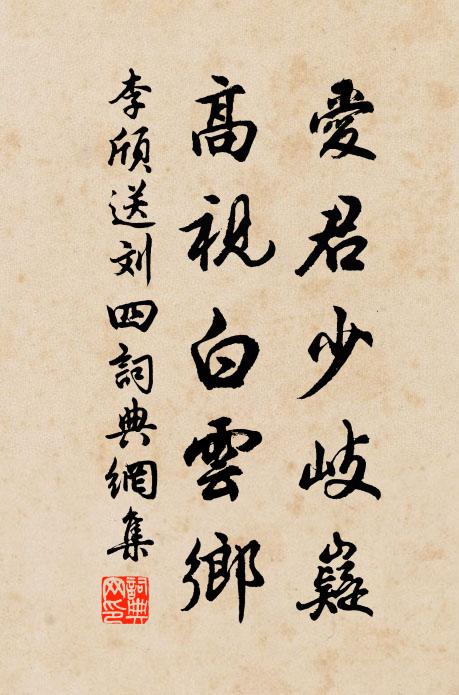 愛君少岐嶷
高視白雲鄉
李頎送刘四詞典網集
詞典網印